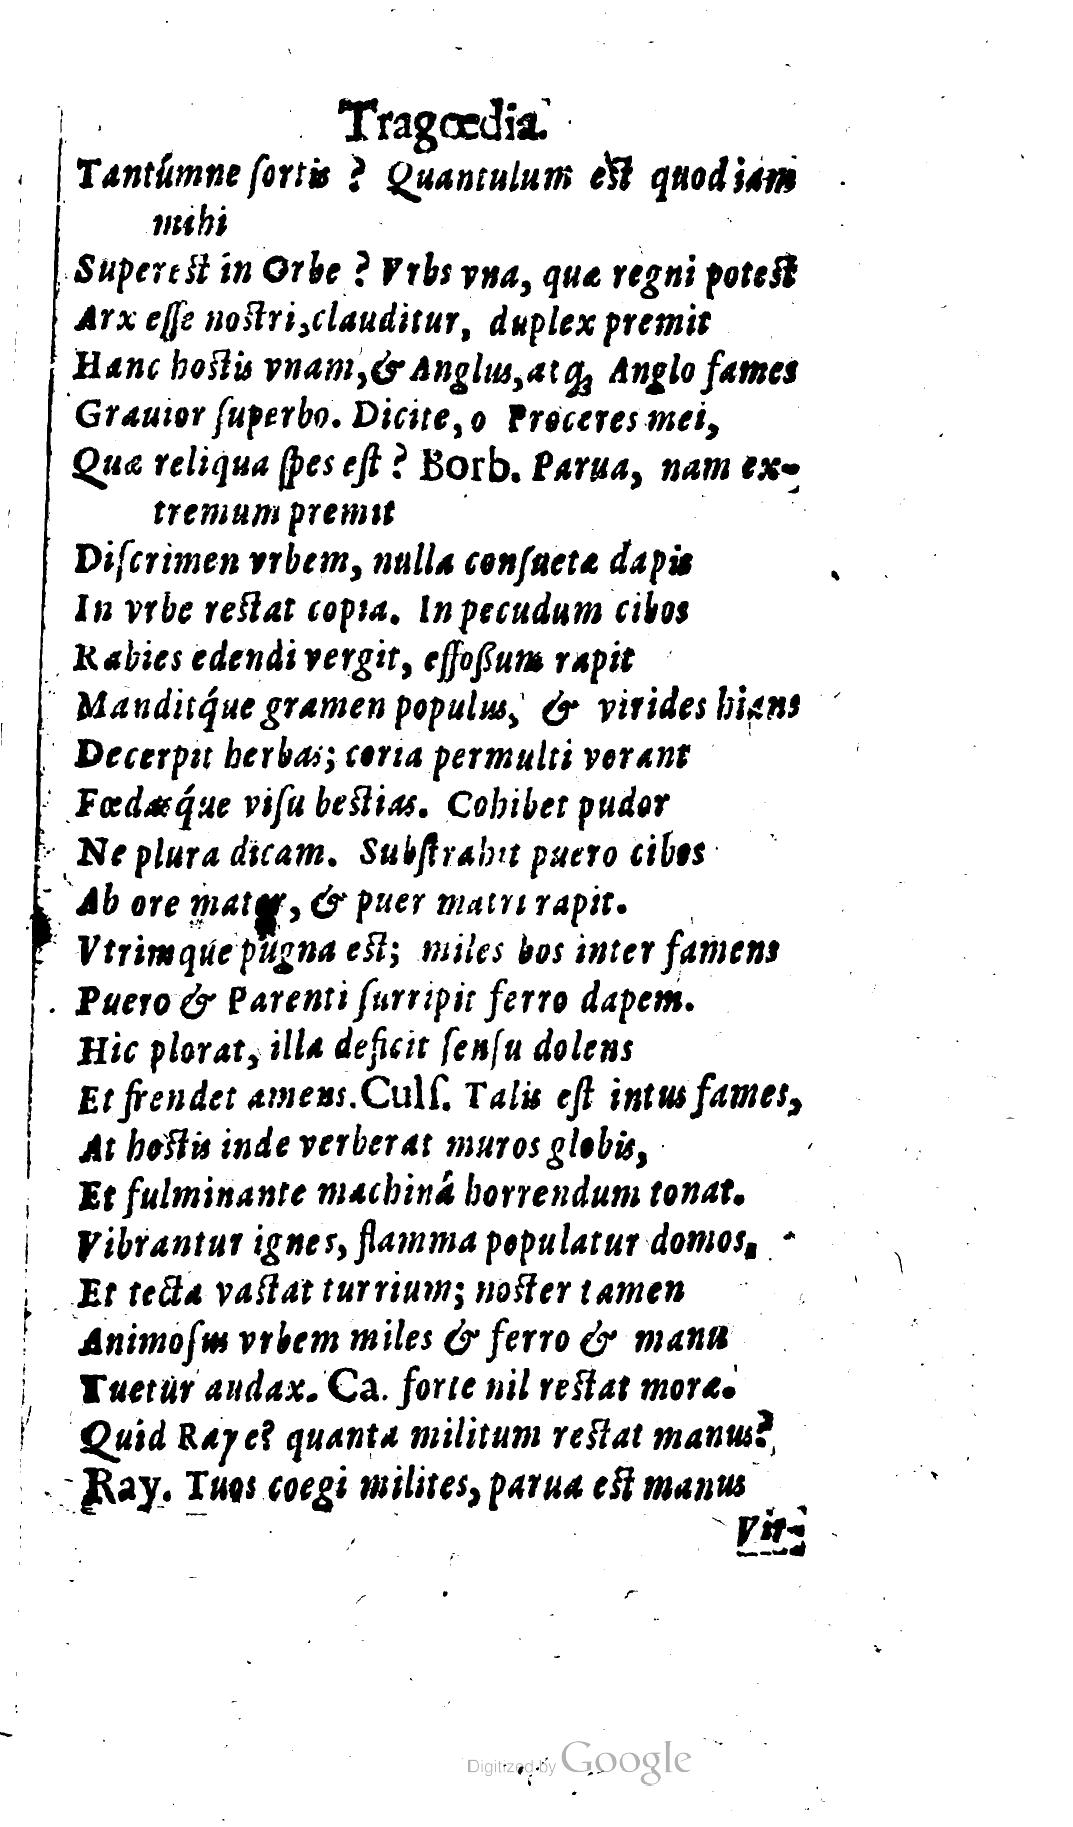 Tragœdia.
Tantúmne ſortis ? Quantulum est quod iam
mihi
Superest in Orbe ? Vrbs vna, quæ regni potest
Arx eſſe nostri, clauditur, duplex premit
Hanc hostis vnam, & Anglus, atq́; Anglo fames
Grauior ſuperbo. Dicite, o Proceres mei,
Quæ reliqua ſpes eſt ? Borb. Parua, nam ex-
tremum premit
Diſcrimen vrbem, nulla conſuetæ dapis
In vrbe restat copia. In pecudum cibos
Rabies edendi vergit, effoßum rapit
Manditq́ue gramen populus, & virides hians
Decerpit herbas; coria permulti vorant
Fœdasq́ue viſu bestias. Cohibet pudor
Ne plura dicam. Subſtrahit puero cibos
Ab ore mater, & puer matri rapit.
Vtrimque pugna est; miles hos inter famens
Puero & Parenti ſurripit ferro dapem.
Hic plorat, illa deficit ſenſu dolens
Et frendet amens. Culſ. Talis eſt intus fames,
At hostis inde verberat muros globis,
Et fulminante machiná horrendum tonat.
Vibrantur ignes, flamma populatur domos,
Et tecta vastat turrium; noster tamen
Animoſus vrbem miles & ferro & manu
Tuetur audax. Ca. forte nil restat moræ.
Quid Raye? quanta militum restat manus?
Ray. Tuos coegi milites, parua est manus
Vir-
Digitized by Google